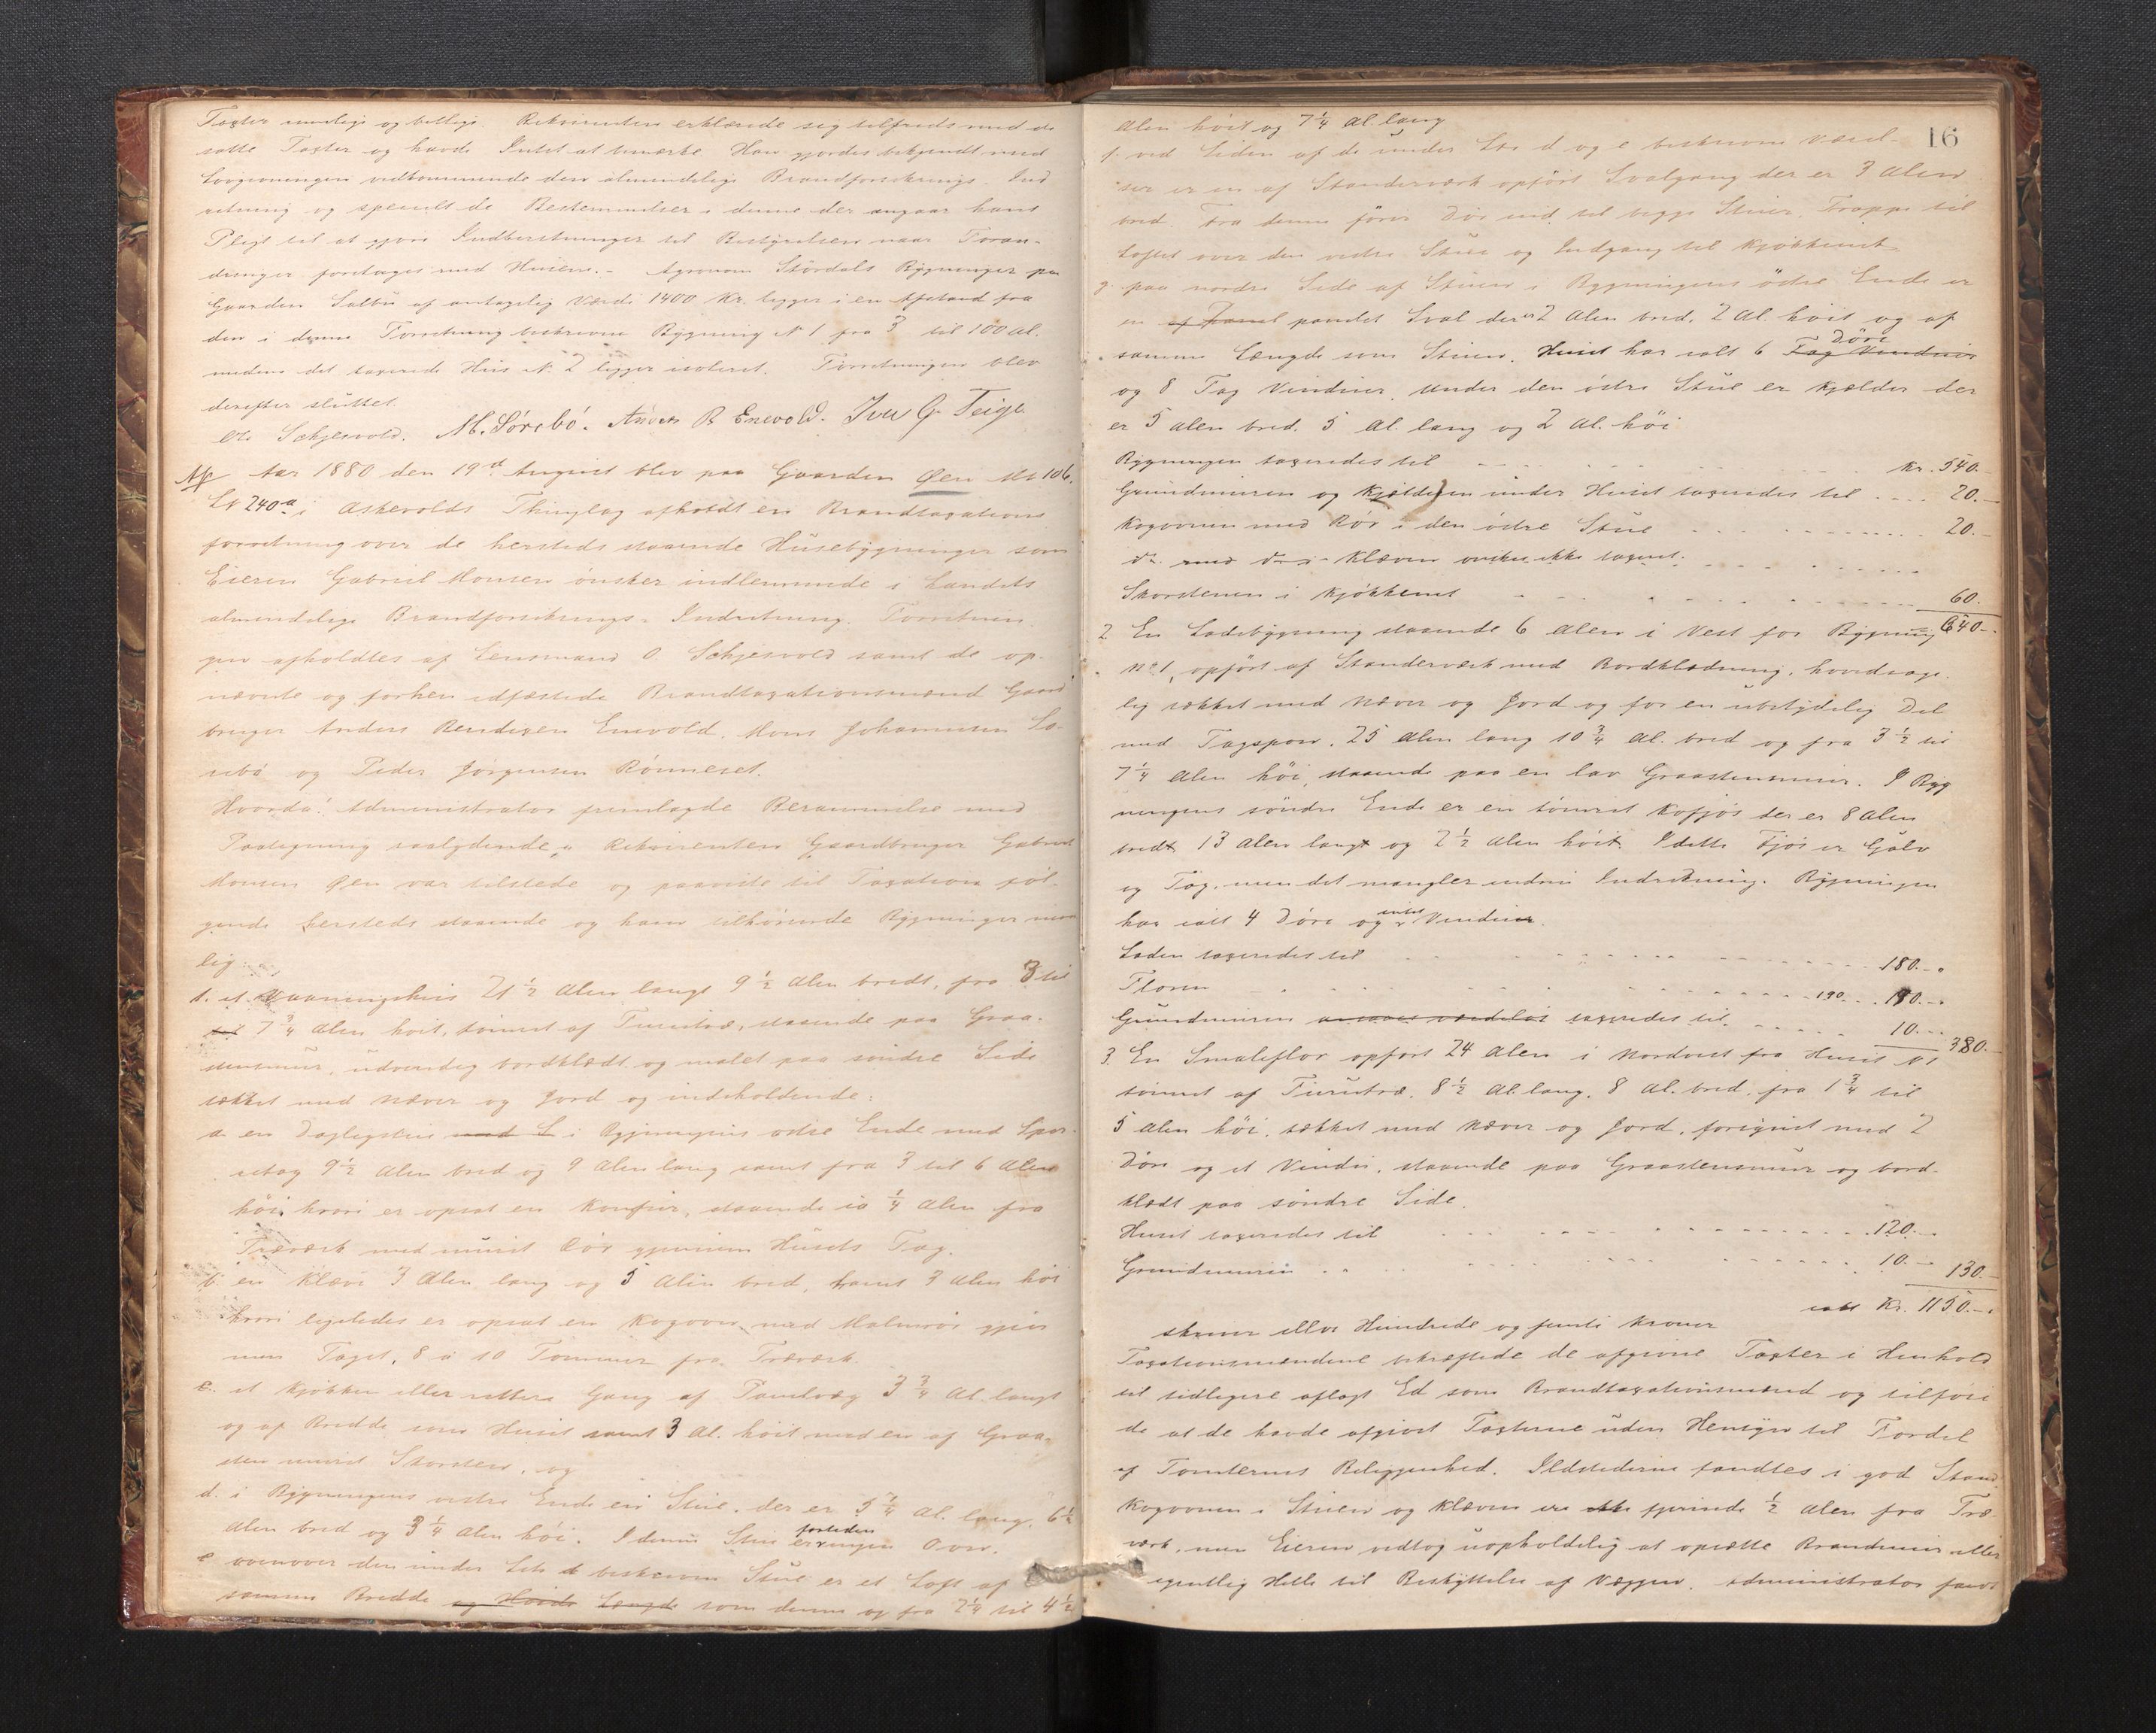 Taxter rimelige og billige. Rekvirenten erklærede sig tilfreds med de
satte Taxter og havde Intet at bemærke. Han gjordes bekjendt med
Lovgivningen vedkommende den almindelige Brandforsikrings-Ind
retning og specielt de Bestemmelser i denne der angaar hans
Pligt til at gjøre Indberetninger til Bestyrelsen naar Foran-
dringer foretages med Husene.- Agronom Stördals Bygninger paa
Gaarden Salbu af antagelig Værdi 1400 Kr. ligger i en Afstand fra
den i denne Forretning beskrevne Bygning N 1 fra 3 til 100 al.
medens det taxerede Hus N. 2 ligger isoleret. Forretningen blev
derefter sluttet.
Ole Schjesvold. M. Sörebö. Anders B Enevold. Iver G Teige
Aar 1880 den 19de August blev paa Gaarden Øen Mt 106.
Lt 240a i Askevolds Thinglag afholdt en Brandtaxations
forretning over de hersteds staaende Husebygninger som
Eieren Gabriel Monsen ønsker indlemmede i Landets
almindelige Brandforsikrings-Indretning. Forretnin
gen afholdtes af Lensmand O. Schjesvold samt de op-
nævnte og forhen edfæstede Brandtaxationsmænd Gaard
bruger Anders Bendixen Enevold, Mons Johannesen Sö-
rebö og Peder Jörgensen Rönneset.
Hvorda: Administrator fremlagde Berammelse med
Paategning saalydende, Rekvirenten Gaardbruger Gabriel
Monsen Øen var tilstede og paaviste til Taxation föl-
gende hersteds staaende og ham tilhørende Bygninger nem
lig:
1. et Vaaningshus 21 ½ Alen langt 9 ½ Alen bredt, fra 3 til
7 ¾ Alen høit, tömret af Furutræ, staaende paa Graa-
stensmur, udvendig bordklædt og malet paa søndre Side
tækket med Næver og Jord og indeholdende:
a en Dagligstue med L i Bygningens østre Ende med Sper-
retag 9 ½ Alen bred og 9 Alen lang samt fra 3 til 6 Alen
höi hvori er opsat en Komfur, staaende ca ¼ Alen fra
Træværk med muret Rör gjennem Husets Tag.
b. en Kleve 3 Alen lang og 5 Alen bred, samt 3 Alen höi
hvori ligeledes er opsat en Kogovn med Malmrör gjen
nem Taget, 8 à 10 Tommer fra Træværk
c. et Kjøkken eller rettere Gang af Panelvæg 3 ¾ Al. langt
og af Bredde som Huset samt 3 Al. höit med en af Graa-
sten muret Skorsten, og
d. i Bygningens vestre Ende en Stue, der er 5 ¼ Al. lang, 6 ½
Alen bred og 3 ¼ Alen höi. I denne Stue er fortiden ingen Ovn.
e ovenover den under Litr d beskrevne Stue er et Loft af
samme Bredde og Höide Længde som denne og fra 2 ¼ til 4 ½
16
Alen höit og 7 ¼ Al. lang
f. ved Siden af de under Ltr d og e beskrevne Værel-
ser er en af Standerværk opført Svalgang der er 3 Alen
bred. Fra denne fører Dör ind til begge Stuer, Trappe til
Loftet over den vestre Stue og Indgang til Kjøkkenet
g. paa nordre Side af Stuen i Bygningens östre Ende er
en af Panel pandet Sval der er 2 Alen bred, 2 Al. höit og af
samme Længde som Stuen. Huset har ialt 6 Fag Vinduer Döre
og 8 Fag Vinduer. Under den östre Stue er Kjælder der
er 5 Alen bred, 5 Al. lang og 2 Al. höi
Bygningen taxeredes til Kr. 540.-
Grundmuren og Kjælderen under Huset taxeredes til 20.-
Kogovnen med Rör i den östre Stue 20.-
do. med do i Kleven önskes ikke taxeret.
Skorstenen i Kjøkkenet 60.
640.-
2 En Ladebygning staaende 6 Alen i Vest for Bygning
No 1, opført af Standerværk med Bordklædning, hovedsage-
lig tækket med Næver og Jord og for en ubetydelig Del
med Tagspon, 25 Alen lang 10 ¾ Al. bred og fra 3 ½ til
7 ¼ Alen höi, staaende paa en lav Graastensmur. I Byg
ningens söndre Ende er en tömret Kofjös der er 8 Alen
bredt 13 Alen langt og 2 ½ Alen höit. I dette Fjös er Gulv
og Tag, men det mangler endnu Indredning. Bygningen
har ialt 4 Döre og intet Vindue.
Laden taxeredes til 180.-
Floren 190. 190.-
Grundmuren ansaaes værdelös taxeredes til 10.-
380.-
3. En Smaleflor opfört 24 Alen i Nordvest fra Huset N 1
tömret af Furutræ, 8 ½ Al. lang, 8 Al. bred, fra 1 ¾ til
5 Alen höi, tækket med Næver og Jord, forsynet med 2
Döre og et Vindu, staaende paa Graastensmur og bord-
klædt paa söndre Side.
Huset taxeredes til 120.-
Grundmuren 10.- 130.-
ialt Kr. 1150.-
skriver ellve Hundrede og femti Kroner
Taxationsmændene bekræftede de afgivne Taxter i Henhold
til tidligere aflagt Ed som Brandtaxationsmænd og tilföie
de at de havde afgivet Taxterne uden Hensyn til Fordel
af Tomternes Beliggenhed. Ildstederne fandtes i god Stand
Kogovnen i Stuen og Kleven ere ikke fjernede ½ Alen fra Træ-
værk, men Eieren vedtog uopholdelig at opsætte Brandmur eller
egentlig Helle til Beskyttelse af Væggen. Administrator fandt